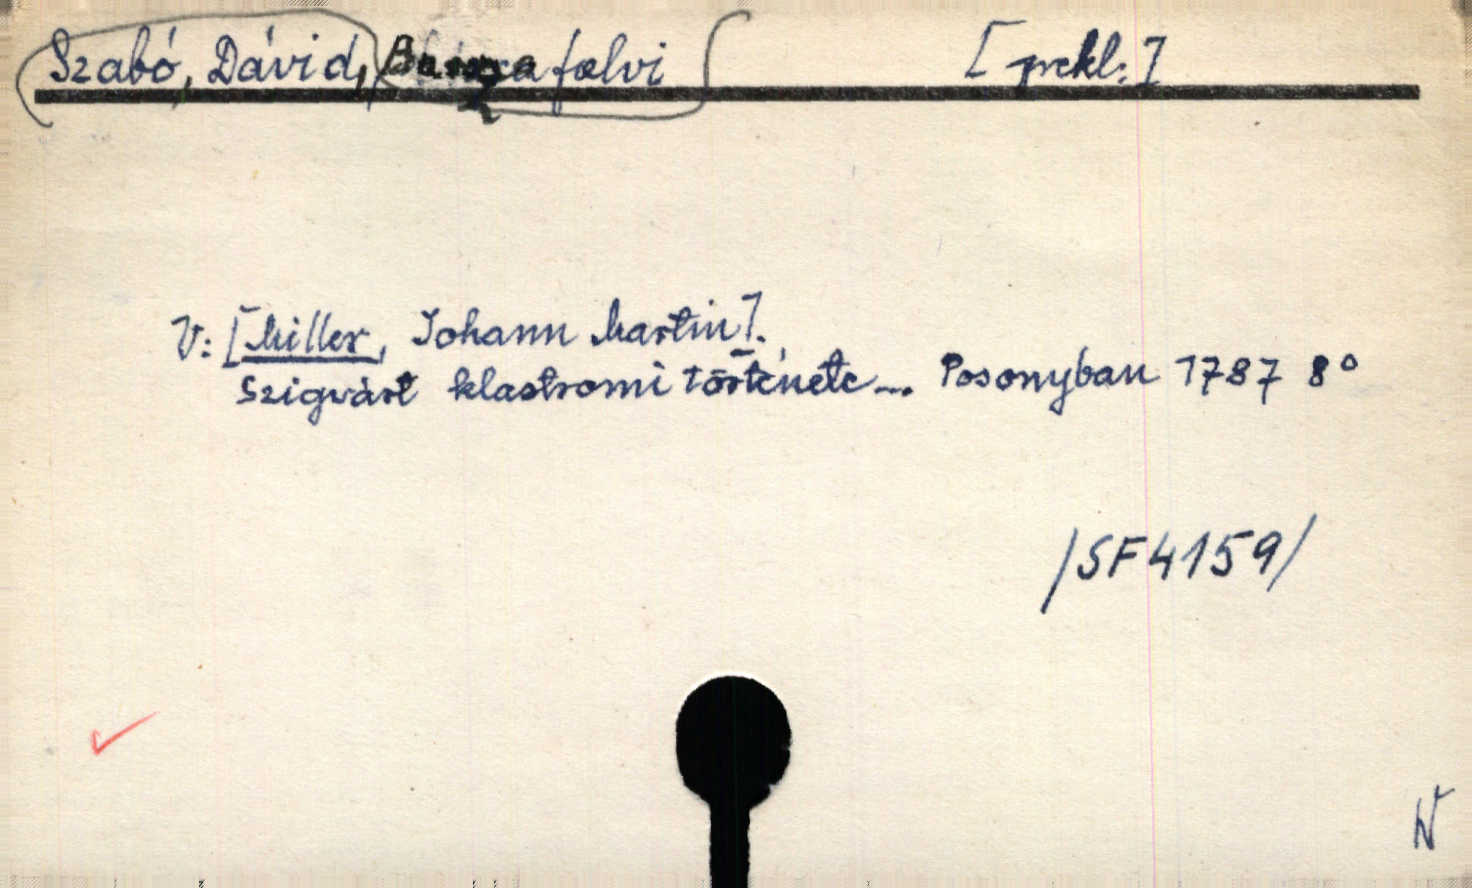 Szabó, Dávid, Barczafalvi [prekl.]
V: [Miller, Johann Martin].
Szigvárt klastromi története... Posonyban 1787 8°
/SF4159/
W